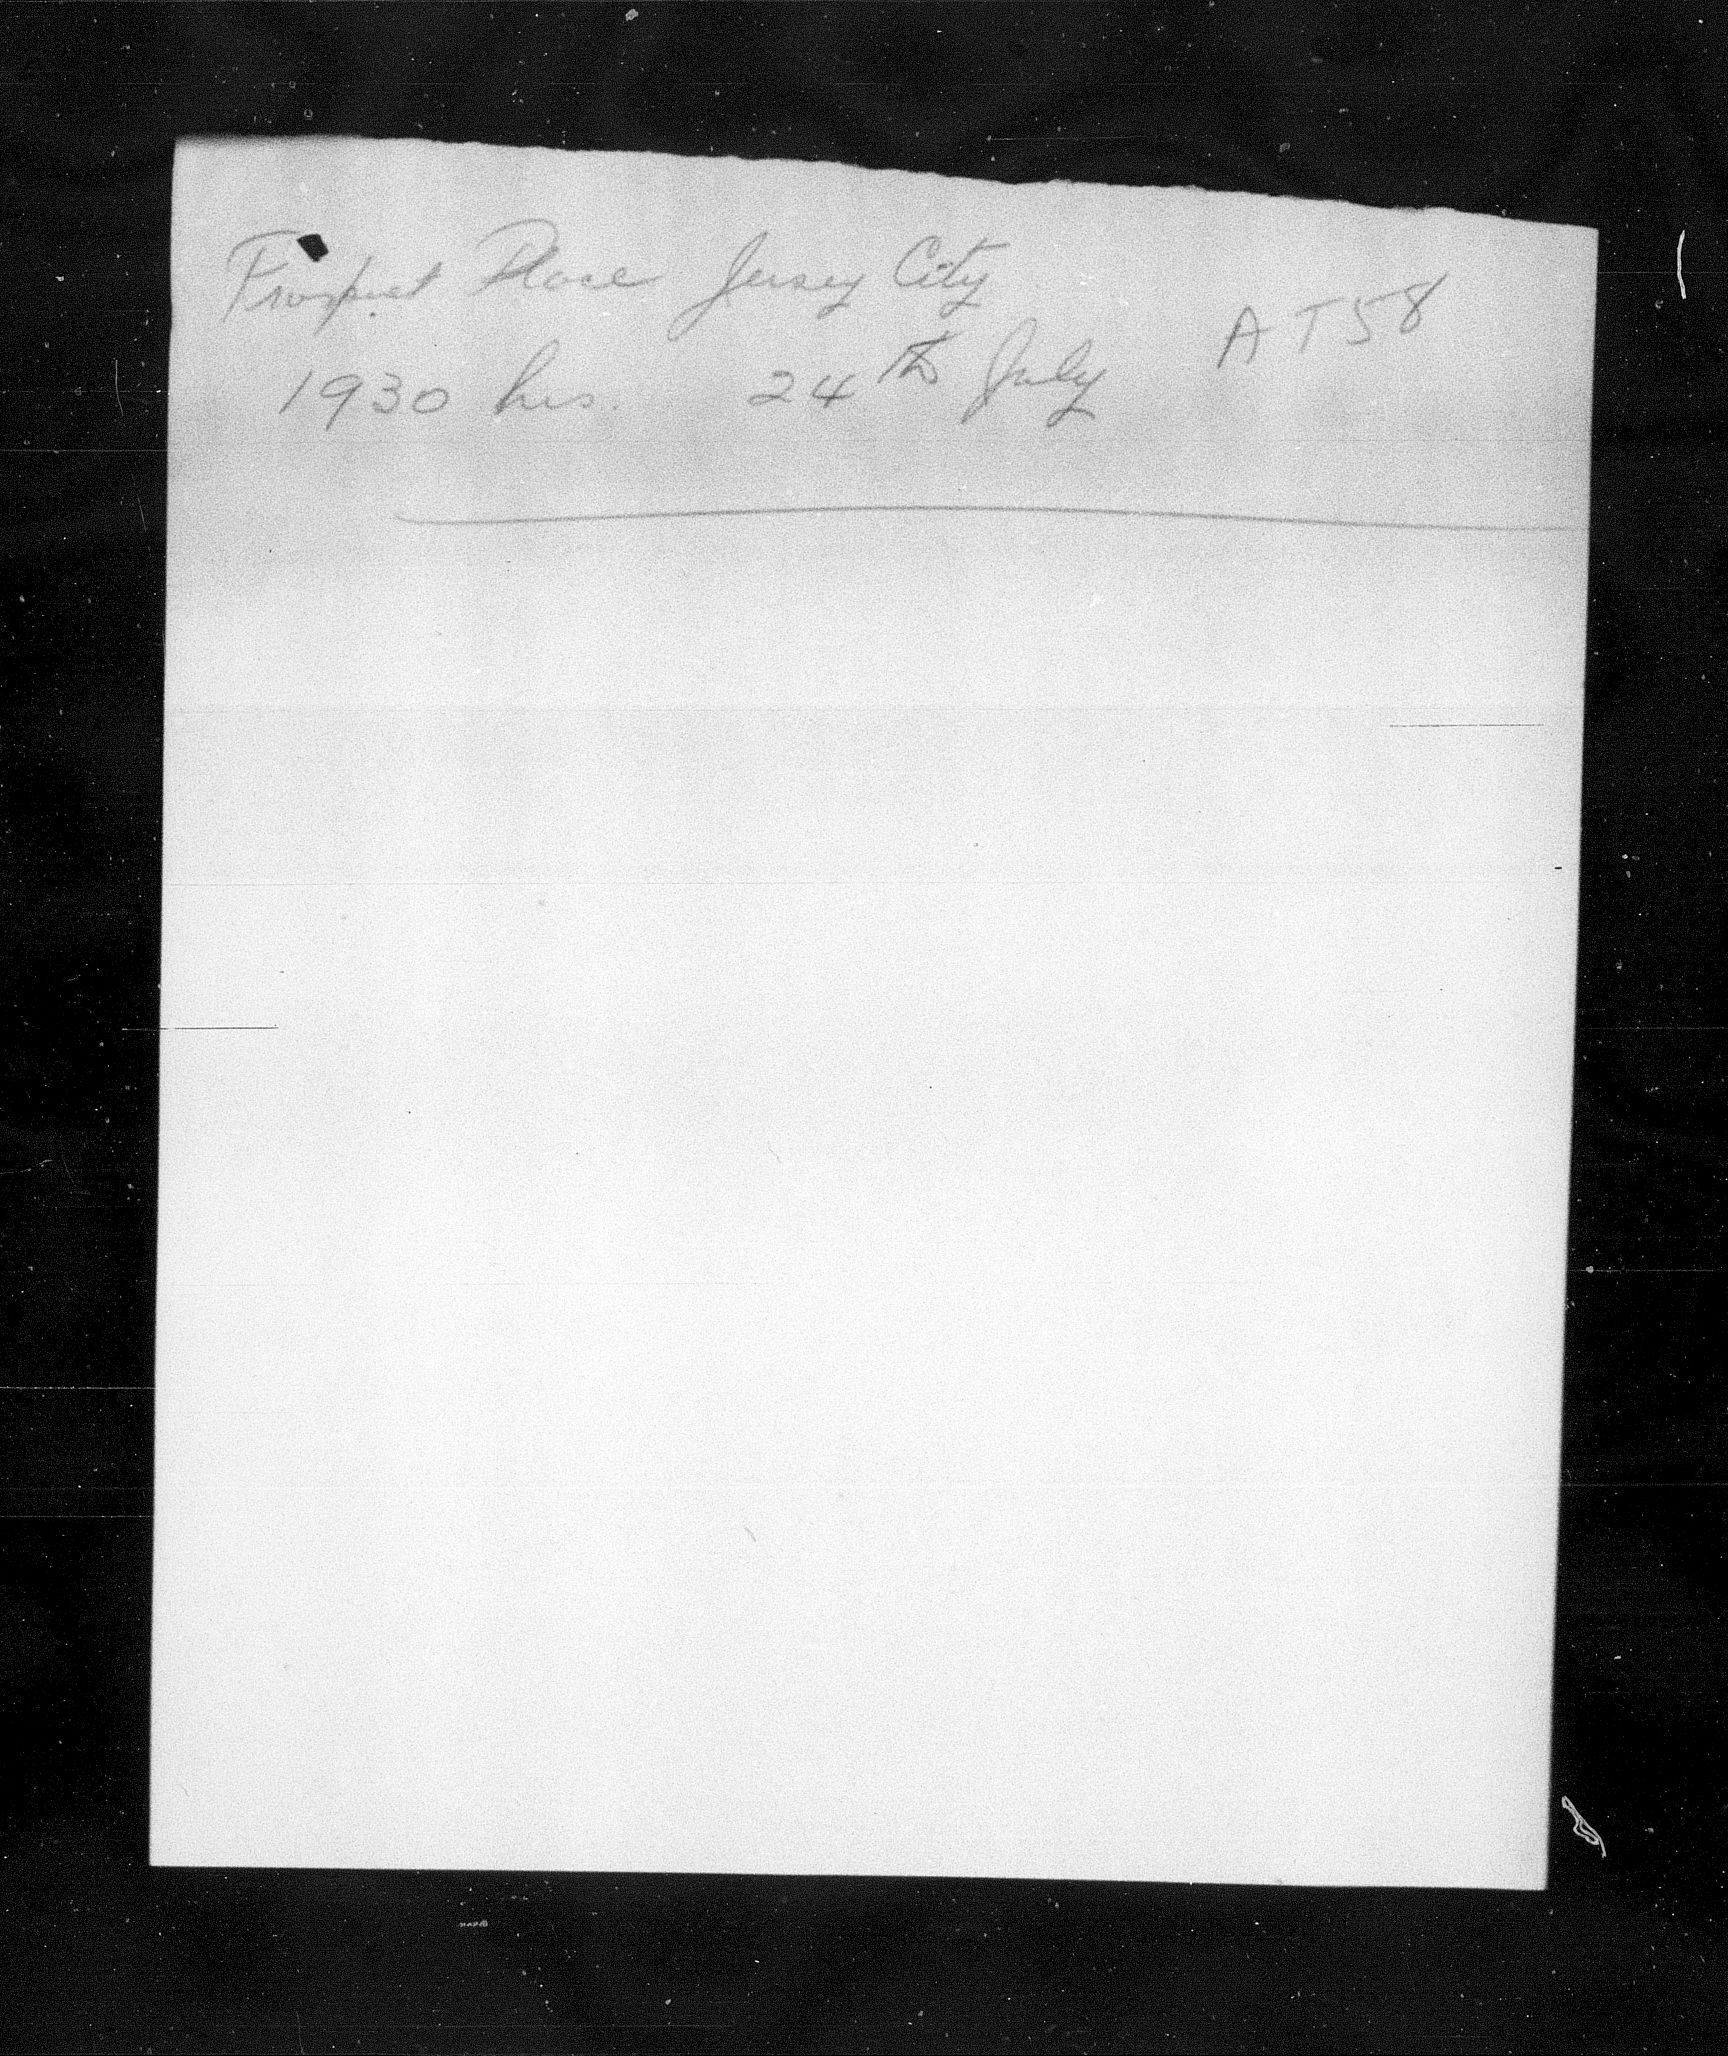 Prospect Place Jersey City
AT58
1930 hrs. 24th July